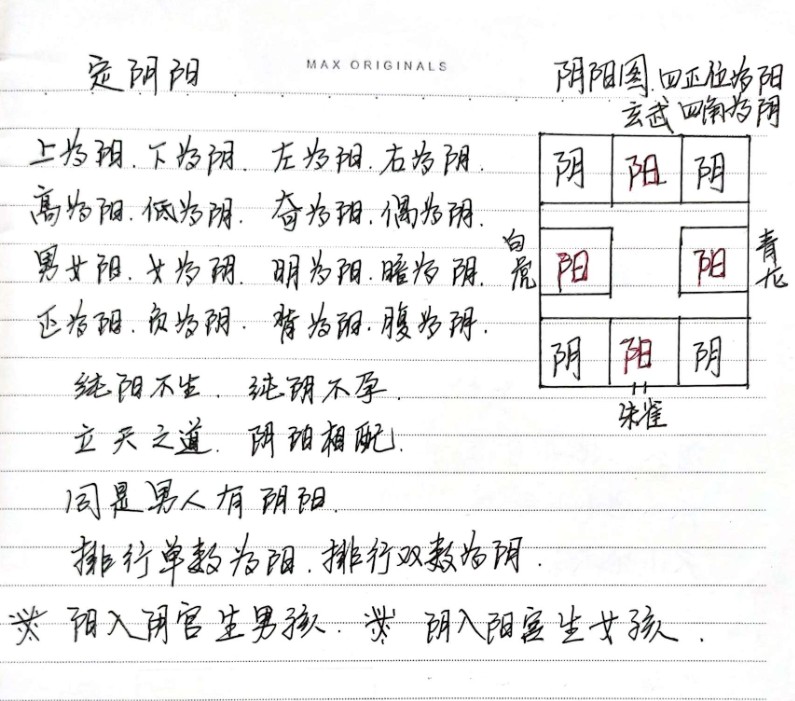 MAX ORIGINALS
定阴阳
阴阳图.四正位为阳
玄武 四角为阴
上为阳.下为阴. 左为阳.右为阴.
高为阳.低为阴. 奇为阳.偶为阴.
男女阳.女为阴. 明为阳.暗为阴.
正为阳.负为阴. 背为阳.腹为阴.
阴 阳 阴
白虎 阳 阳 青龙
阴 阳 阴
朱雀
纯阳不生. 纯阴不孕.
立天之道. 阴阳相配.
同是男人有阴阳.
排行单数为阳.排行双数为阴.
阳入阴宫生男孩. 阴入阳宫生女孩.